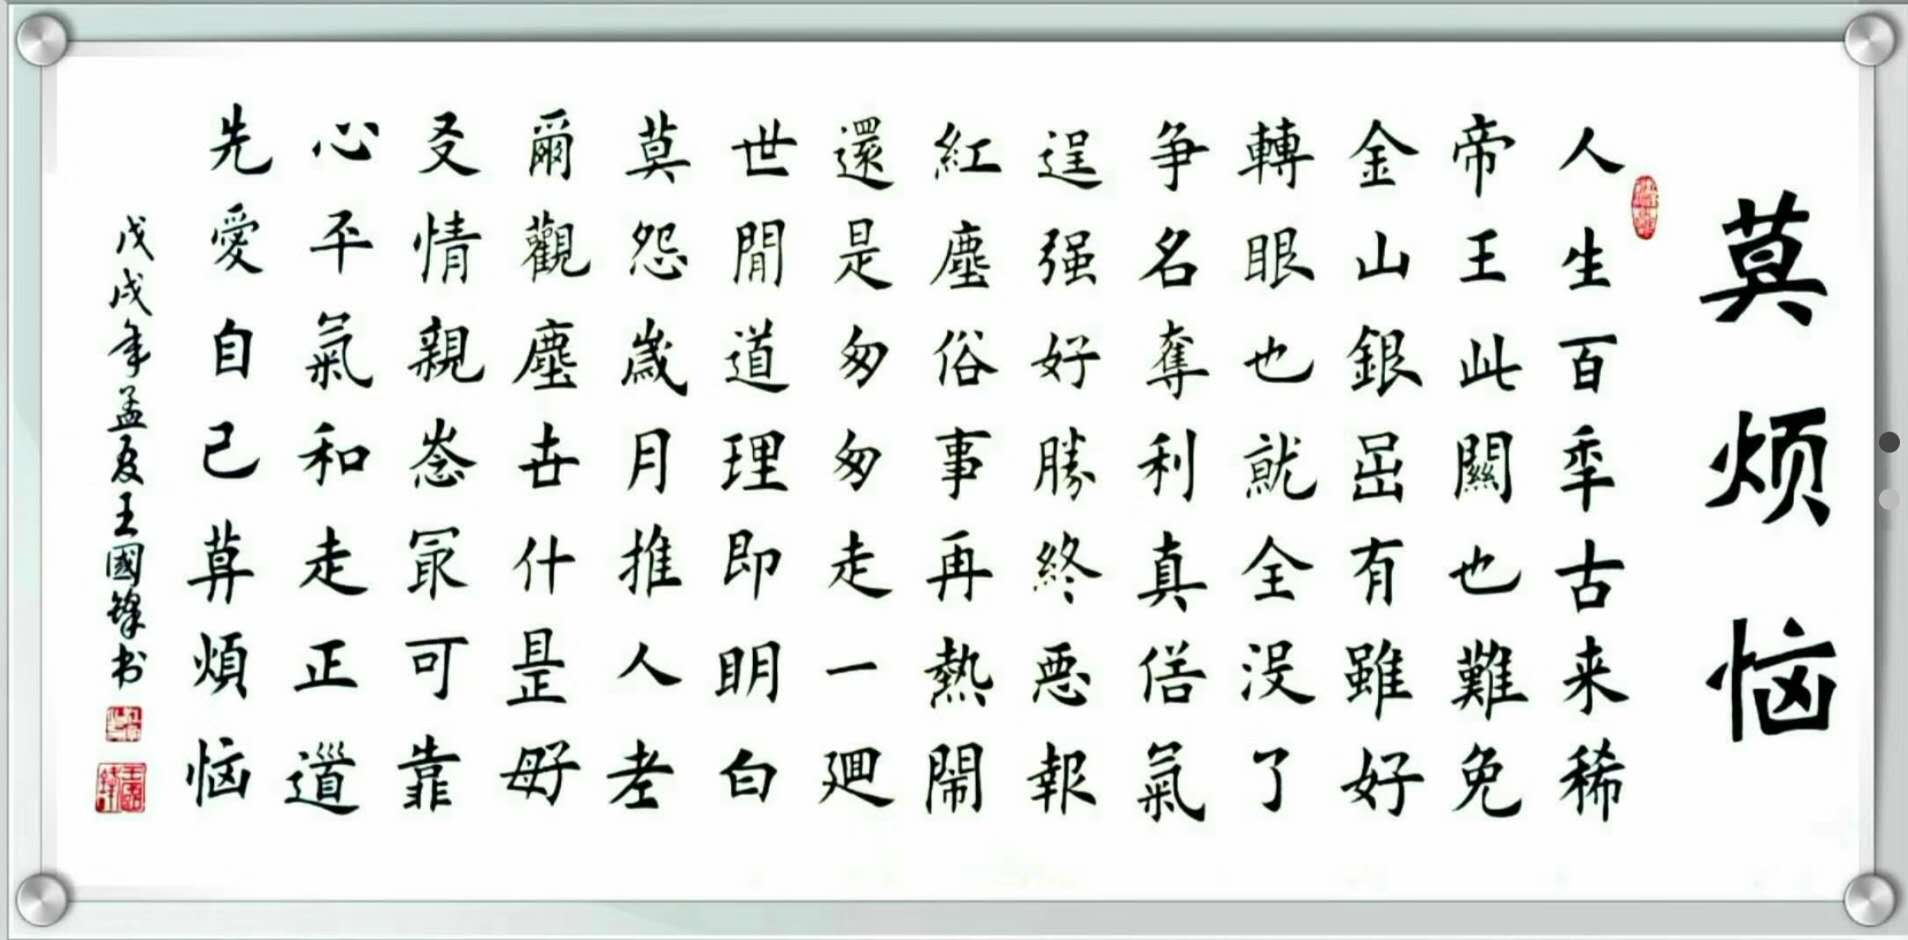 莫烦恼
人生百秊古来稀
帝王此關也難免
金山銀嵒有雖好
轉眼也就全没了
争名奪利真氣
逞强好勝終惡報
紅塵俗事再熱鬧
還是匆匆走一廻
世間道理即明白
莫怨歲月推人老
爾觀塵世什是好
友情親最可靠
心平氣和走正道
先愛自己莫煩恼
戊戌年孟夏王國鋒书